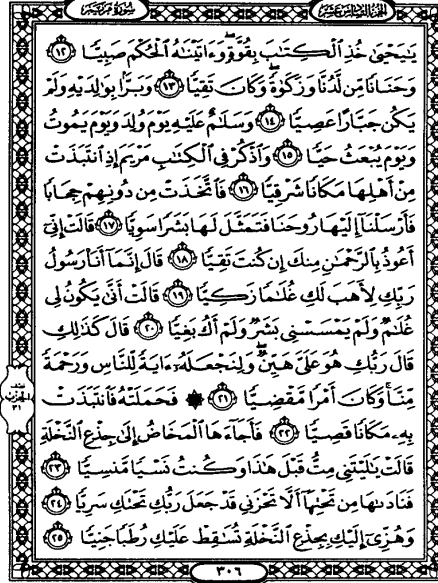 سُورَةُ مَرْيَمَ
الجُزْءُ السَّادِسَ عَشَرَ
يَٰيَحْيَىٰ خُذِ ٱلْكِتَٰبَ بِقُوَّةٍ ۖ وَءَاتَيْنَٰهُ ٱلْحُكْمَ صَبِيًّا ١٢
وَحَنَانًا مِّن لَّدُنَّا وَزَكَوٰةً ۖ وَكَانَ تَقِيًّا ١٣ وَبَرًّۢا بِوَٰلِدَيْهِ وَلَمْ
يَكُن جَبَّارًا عَصِيًّا ١٤ وَسَلَٰمٌ عَلَيْهِ يَوْمَ وُلِدَ وَيَوْمَ يَمُوتُ
وَيَوْمَ يُبْعَثُ حَيًّا ١٥ وَٱذْكُرْ فِى ٱلْكِتَٰبِ مَرْيَمَ إِذِ ٱنتَبَذَتْ
مِنْ أَهْلِهَا مَكَانًا شَرْقِيًّا ١٦ فَٱتَّخَذَتْ مِن دُونِهِمْ حِجَابًا
فَأَرْسَلْنَآ إِلَيْهَا رُوحَنَا فَتَمَثَّلَ لَهَا بَشَرًا سَوِيًّا ١٧ قَالَتْ إِنِّىٓ
أَعُوذُ بِٱلرَّحْمَٰنِ مِنكَ إِن كُنتَ تَقِيًّا ١٨ قَالَ إِنَّمَآ أَنَا۠ رَسُولُ
رَبِّكِ لِأَهَبَ لَكِ غُلَٰمًا زَكِيًّا ١٩ قَالَتْ أَنَّىٰ يَكُونُ لِى
غُلَٰمٌ وَلَمْ يَمْسَسْنِى بَشَرٌ وَلَمْ أَكُ بَغِيًّا ٢٠ قَالَ كَذَٰلِكِ
قَالَ رَبُّكِ هُوَ عَلَىَّ هَيِّنٌ ۖ وَلِنَجْعَلَهُۥٓ ءَايَةً لِّلنَّاسِ وَرَحْمَةً
مِّنَّا ۚ وَكَانَ أَمْرًا مَّقْضِيًّا ٢١ ۞ فَحَمَلَتْهُ فَٱنتَبَذَتْ
بِهِۦ مَكَانًا قَصِيًّا ٢٢ فَأَجَآءَهَا ٱلْمَخَاضُ إِلَىٰ جِذْعِ ٱلنَّخْلَةِ
قَالَتْ يَٰلَيْتَنِى مِتُّ قَبْلَ هَٰذَا وَكُنتُ نَسْيًا مَّنسِيًّا ٢٣
فَنَادَىٰهَا مِن تَحْتِهَآ أَلَّا تَحْزَنِى قَدْ جَعَلَ رَبُّكِ تَحْتَكِ سَرِيًّا ٢٤
وَهُزِّىٓ إِلَيْكِ بِجِذْعِ ٱلنَّخْلَةِ تُسَٰقِطْ عَلَيْكِ رُطَبًا جَنِيًّا ٢٥
الحزب
٣١
٣٠٦